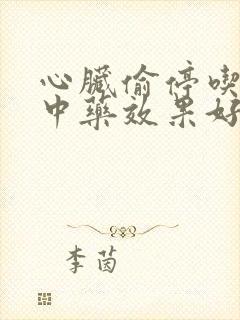 心臟偷停喫
中藥效果好
李茵